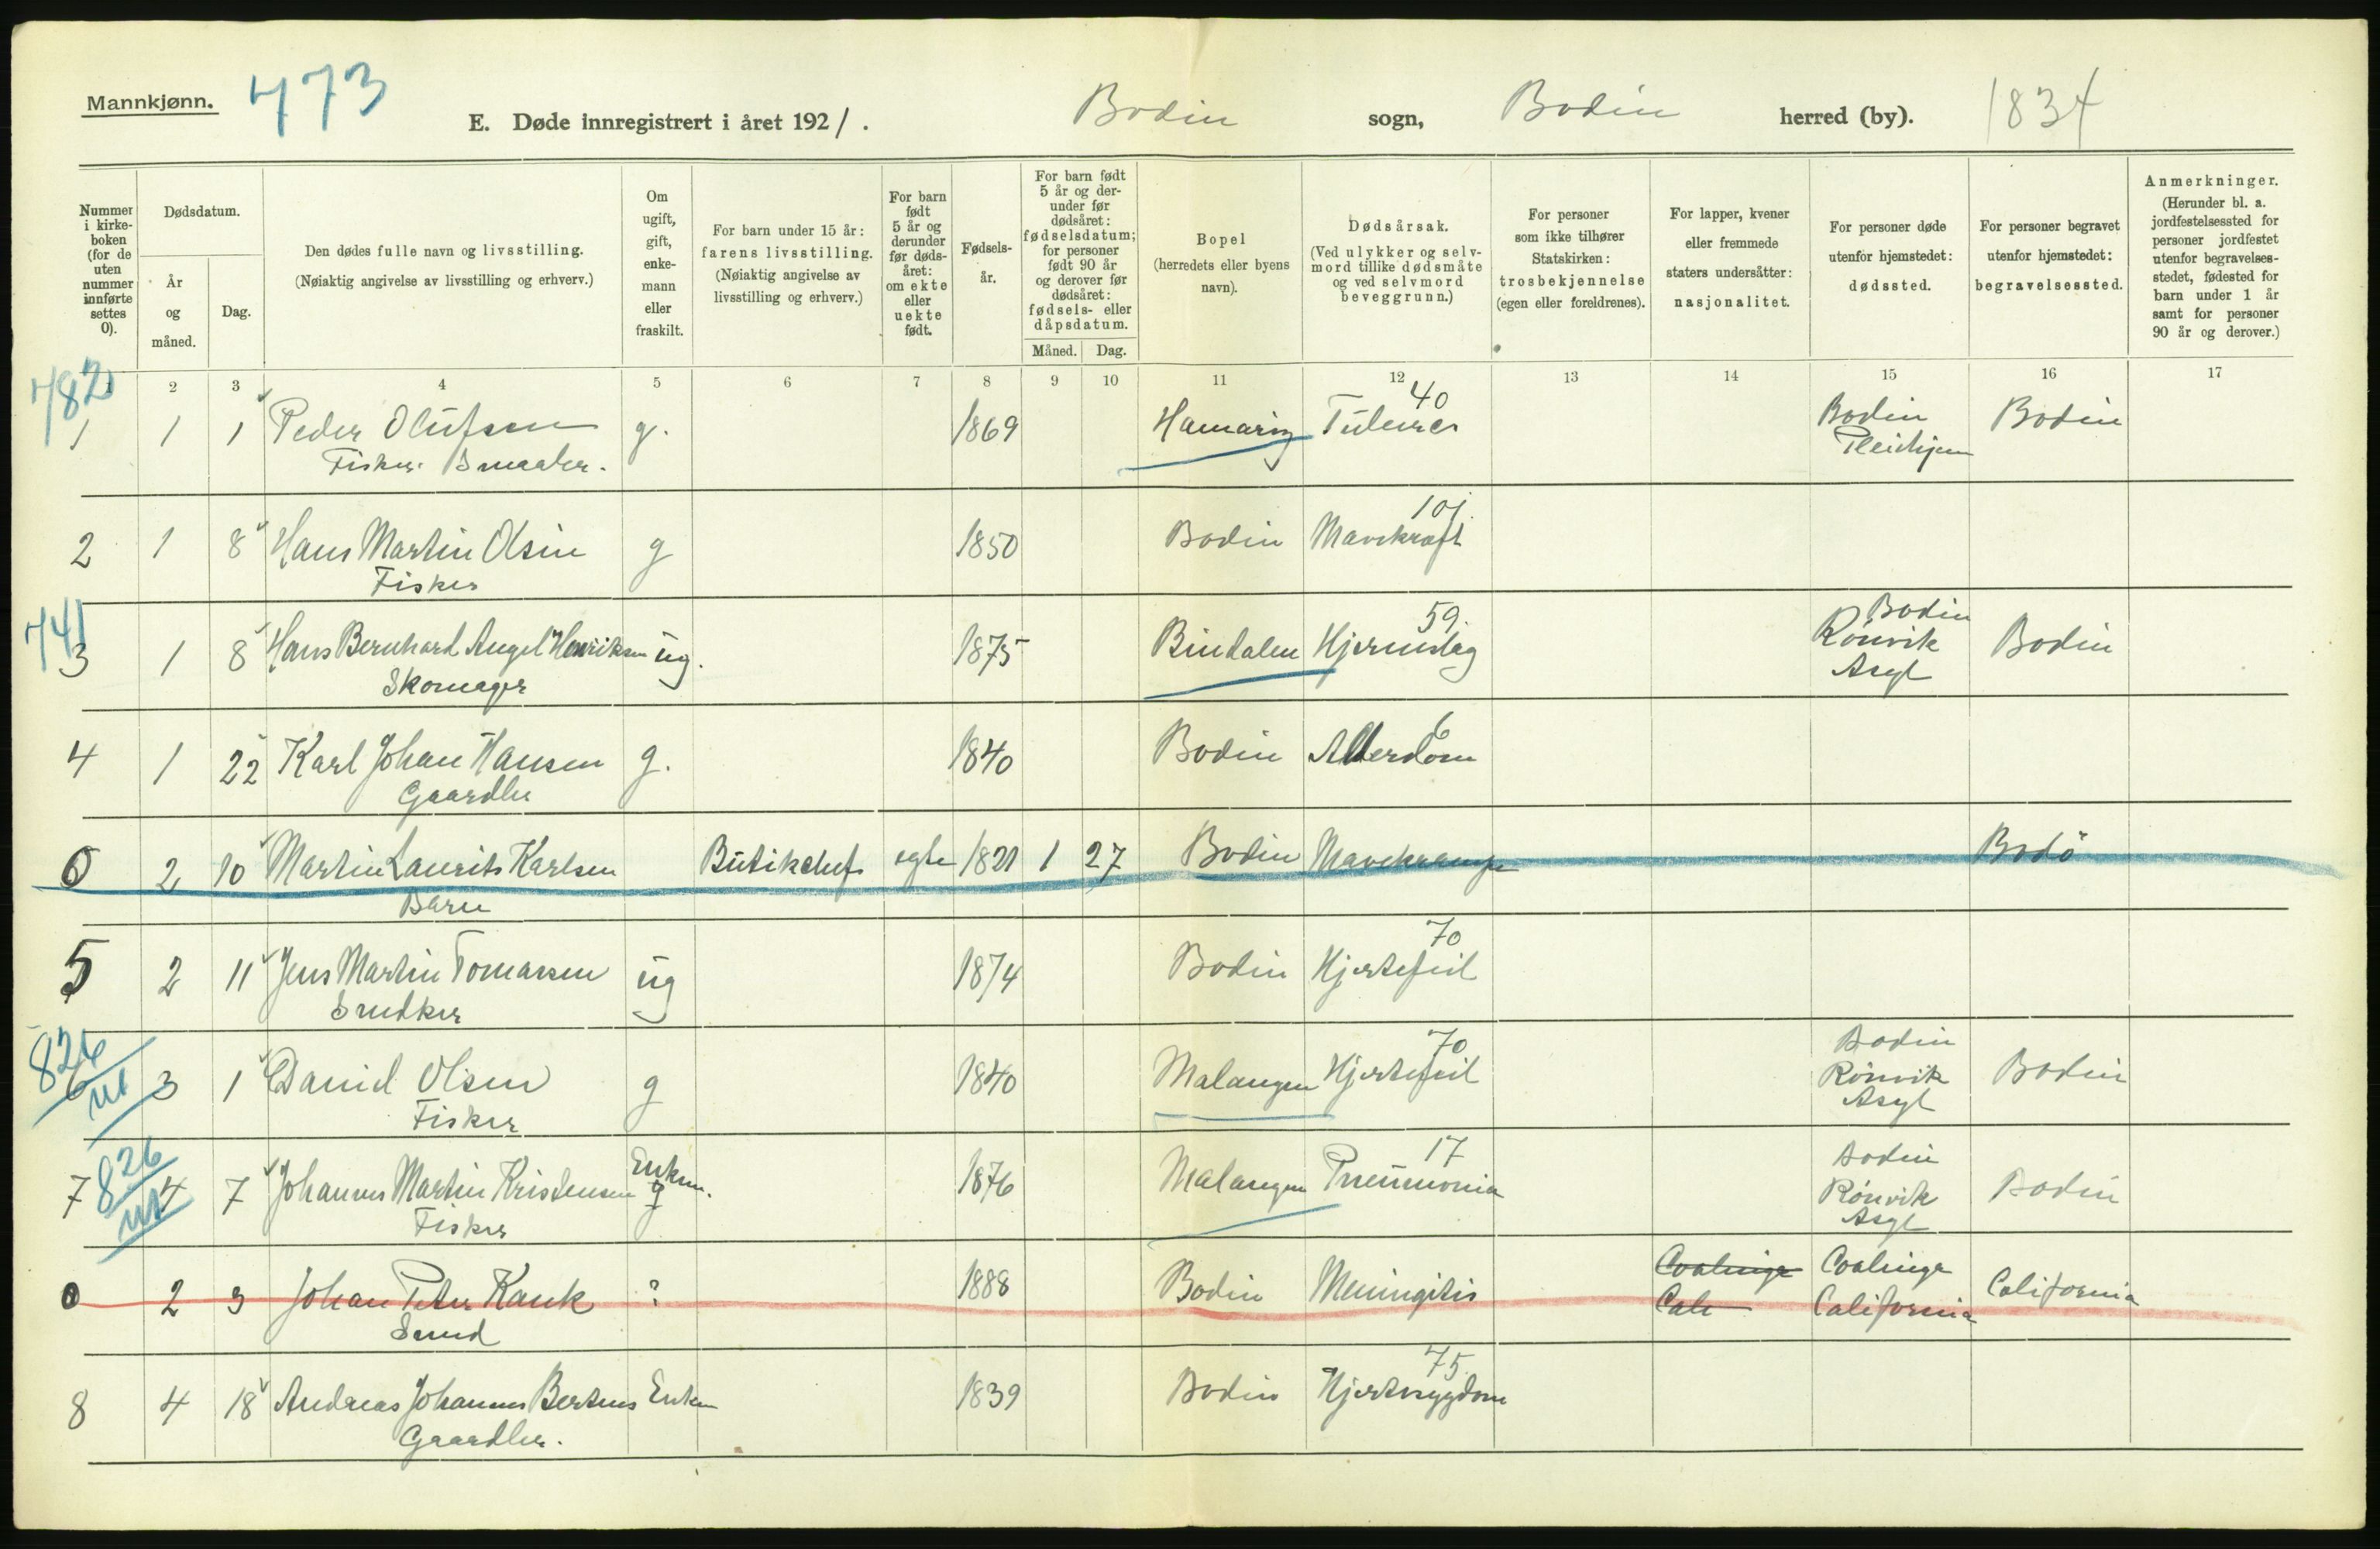 Mannkjønn.
473
E. Døde innregistrert i året 1921.
Bodin sogn, Bodin herred (by).
1834
Nummer i kirke-boken (for de uten nummer innførte settes 0).
Dødsdatum.
År og måned.
Dag.
Den dødes fulle navn og livsstilling.
(Nøiaktig angivelse av livsstilling og erhverv.)
Om ugift, gift, enke-mann eller fraskilt.
For barn under 15 år: farens livsstilling.
(Nøiaktig angivelse av livsstilling og erhverv.)
For barn født 5 år og derunder før døds-året: om ekte eller uekte født.
Fødsels-år.
For barn født 5 år og der-under før dødsåret: fødselsdatum; for personer født 90 år og derover før dødsåret: fødsels- eller dåpsdatum.
Måned. Dag.
Bopel
(herredets eller byens navn).
Dødsårsak.
(Ved ulykker og selv-mord tillike dødsmåte og ved selvmord beveggrunn.)
For personer som ikke tilhører Statskirken: trosbekjennelse (egen eller foreldrenes).
For lapper, kvener eller fremmede staters undersåtter: nasjonalitet.
For personer døde utenfor hjemstedet: dødssted.
For personer begravet utenfor hjemstedet: begravelsessted.
Anmerkninger.
(Herunder bl. a. jordfestelsessted for personer jordfestet utenfor begravelses-stedet, fødested for barn under 1 år samt for personer 90 år og derover.)
1 2 3 4 5 6 7 8 9 10 11 12 13 14 15 16 17
782
40
1 1 1 Peder Olufsen g. 1869 Hamarøy Bodin Bodin
Fisker Pleiehjem
101.
2 1 8 Hans Martin Olsen g 1850 Bodin Mavekræft
Fisker
741
59. Bodin
3 1 8 Hans Bernhard Angel Henriksen ug. 1875 Bindalen Hjerneslag Rönvik Bodin
Skomager Asyl
6
4 1 22 Karl Johan Hansen g. 1840 Bodin Alderdom
Gaardbr
0 2 10 Martin Laurits Karlsen egte 1921 1 27 Bodin Mavekrampe Bodö
Barn
70
5 2 11 Jens Martin Tomassen ug 1874 Bodin Hjertefeil
Snedker
826
70 Bodin
6 3 1 Daniel Olsen g 1840 Malangen Hjertefeil Rönvik Bodin
Fisker Asyl
826
Enkem. 17 Bodin
7 4 7 Johannes Martin Kristensen g 1876 Malangen Pneumonia Rönvik Bodin
Fisker Asyl
0 2 3 Johan Peter Kank ? 1888 Bodin Meningitis Coalinga Coalinga California
Cale California
75.
8 4 18 Andreas Johannes Bertens Enkem 1839 Bodin Hjertesygdom
Gaardbr.